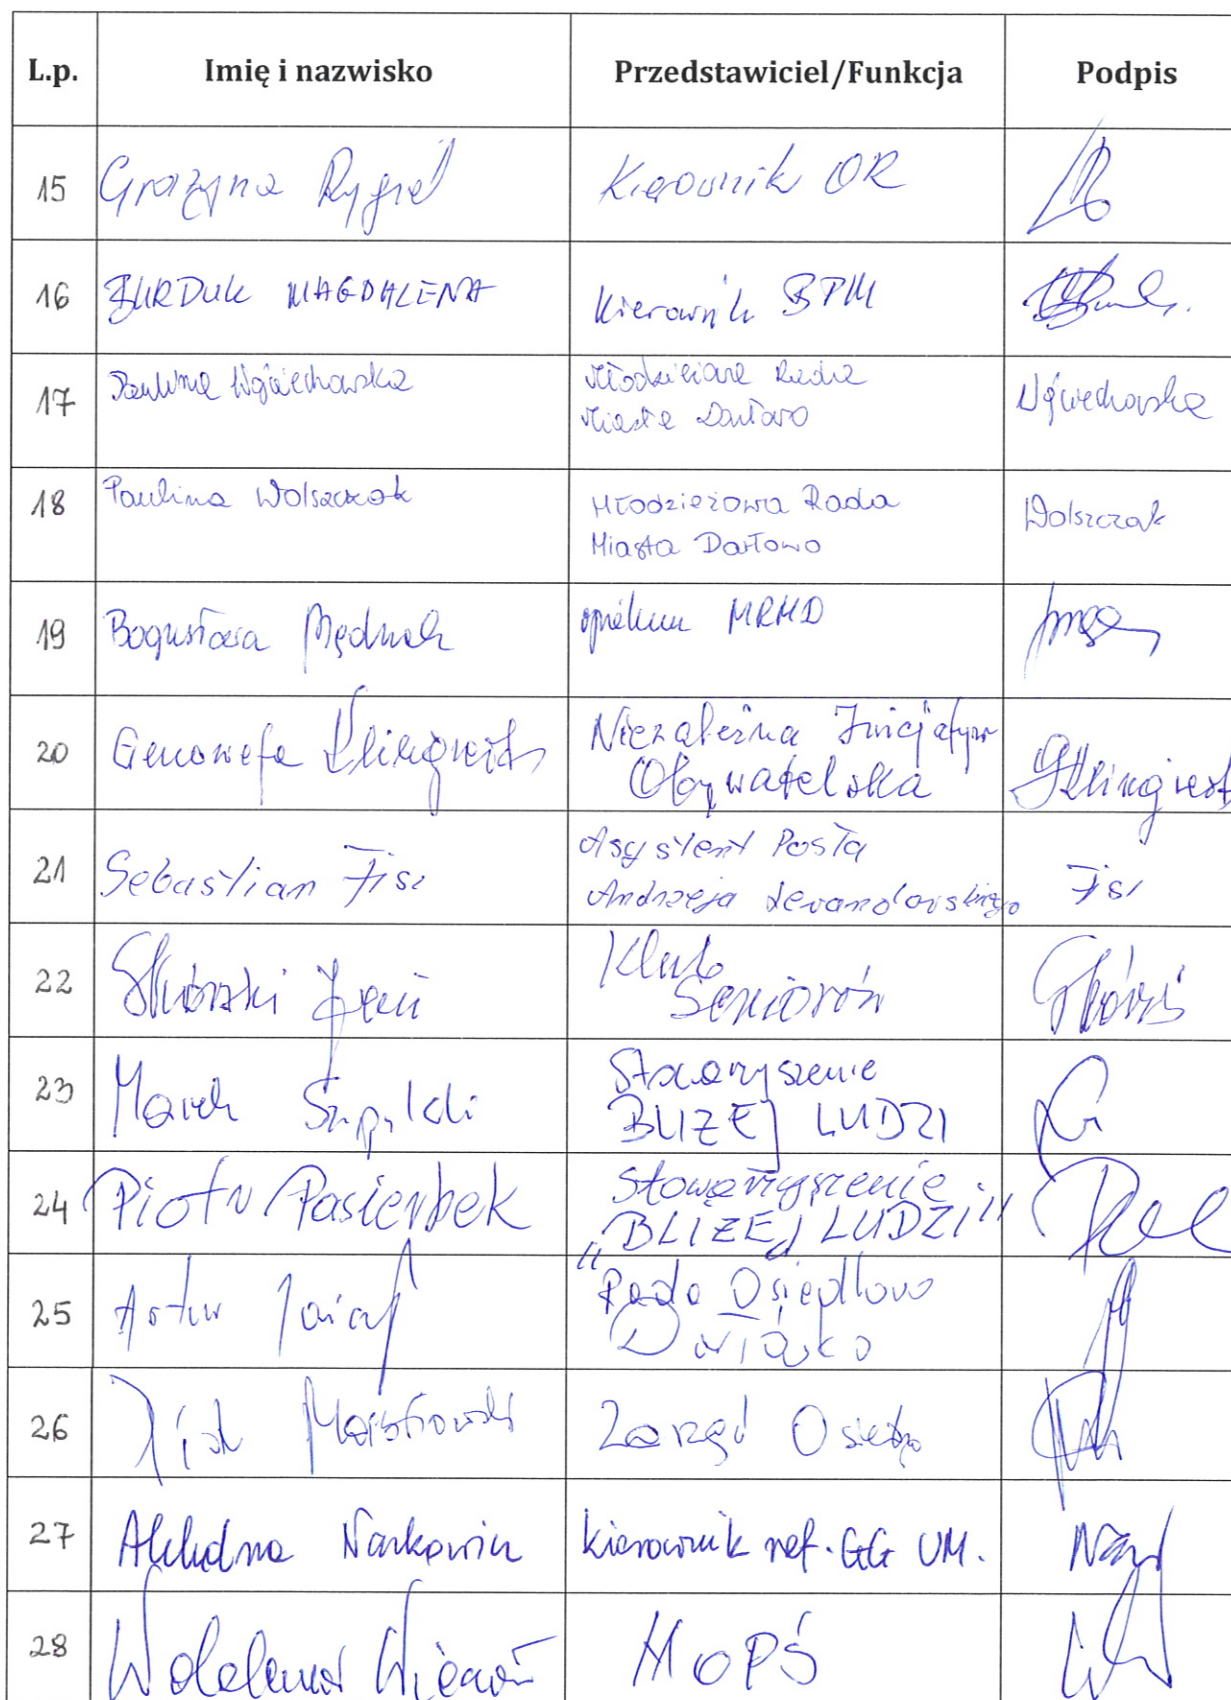 L.p. Imię i nazwisko Przedstawiciel/Funkcja Podpis
15 Grażyna Rygiel Kierownik OR
16 BURDUK MAGDALENA Kierownik BPM
17 Paulina Wojciechowska Młodzieżowa Rada
Miasta Darłowo Wojciechowska
18 Paulina Wolszczak Młodzieżowa Rada
Miasta Darłowo Wolszczak
19 Bogusława opiekun MRMD
20 Genowefa Niezależna Inicjatywa
Obywatelska
21 Sebastian Asystent Posła
Andrzeja Lewandowskiego
22 Skórski Klub
Seniorów
23 Marek Stowarzyszenie
BLIŻEJ LUDZI
24 Piotr Pasierbek Stowarzyszenie
„BLIŻEJ LUDZI"
25 Artur Rada Osiedlowa
26 Zarząd
27 Narkowicz kierownik ref. GG UM.
28 MOPS